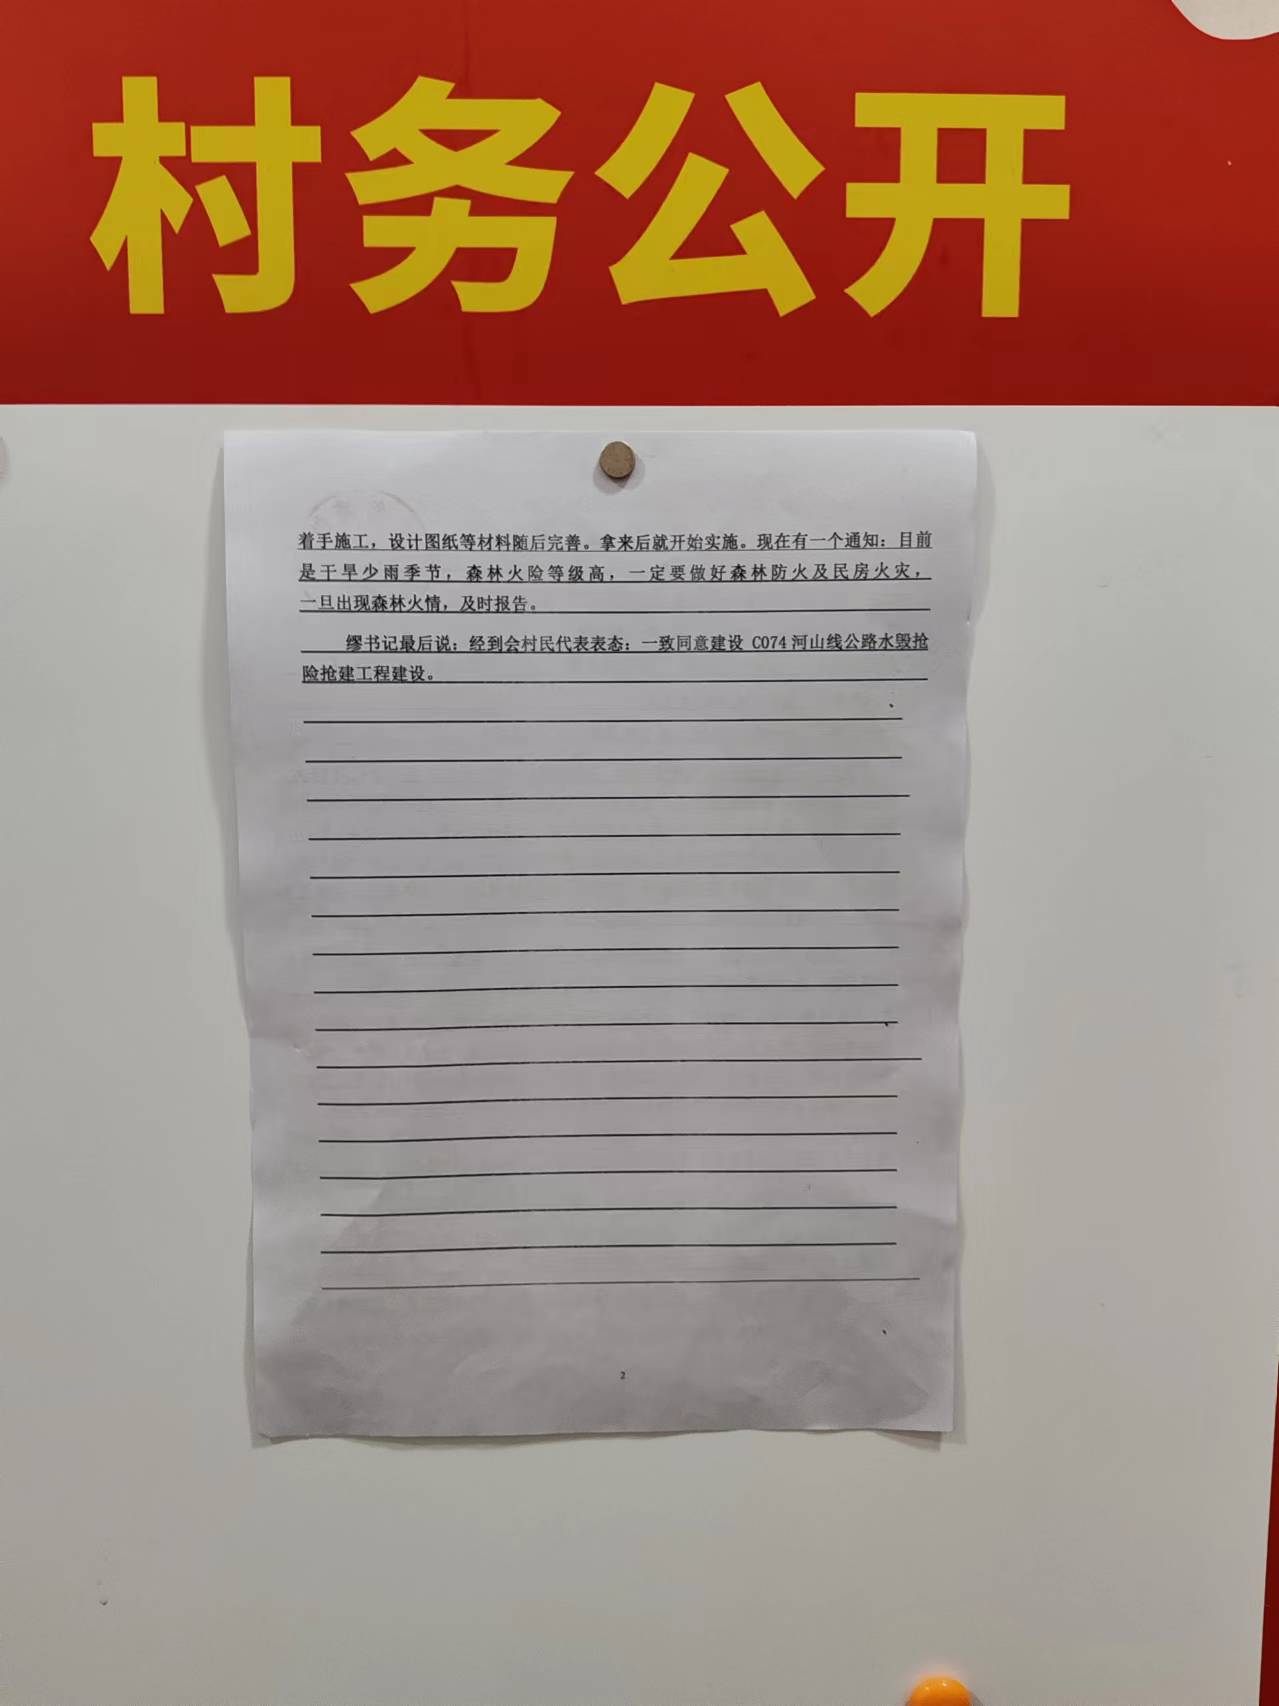 村务公开
着手施工，设计图纸等材料随后完善。拿来后就开始实施。现在有一个通知：目前
是干旱少雨季节，森林火险等级高，一定要做好森林防火及民房火灾，
一旦出现森林火情，及时报告。
缪书记最后说：经到会村民代表表态：一致同意建设 C074 河山线公路水毁抢
险抢建工程建设。
2